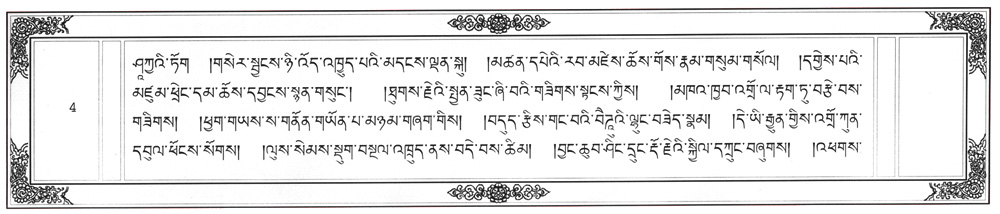 ཤཱཀྱའི་ཏོག །གསེར་སྦྱངས་ཉི་འོད་འཁྱུད་པའི་མདངས་ལྡན་སྐུ། །མཚན་དཔེའི་རབ་མཛེས་ཆོས་གོས་རྣམ་གསུམ་གསོལ། །དགྱེས་པའི་
4
མཛུམ་ཕྲེང་དམ་ཆོས་དབྱངས་སྙན་གསུང་། །ཐུགས་རྗེའི་སྤྱན་ཟུང་ཞི་བའི་གཟིགས་སྟངས་ཀྱིས། །མཁའ་ཁྱབ་འགྲོ་ལ་རྟག་ཏུ་བརྩེ་བས་
གཟིགས། །ཕྱག་གཡས་ས་གནོན་གཡོན་པ་མཉམ་གཞག་གིས། །བདུད་རྩིས་གང་བའི་བཻཌཱུའི་ལྷུང་བཟེད་སྣམ། །དེ་ཡི་རྒྱུན་གྱིས་འགྲོ་ཀུན་
དབུལ་ཕོངས་སོགས། །ལུས་སེམས་སྡུག་བསྔལ་འཁྲུད་ནས་བདེ་བས་ཚིམ། །བྱང་ཆུབ་ཤིང་དྲུང་རྡོ་རྗེའི་སྐྱིལ་དཀྲུང་བཞུགས། །འཕགས་